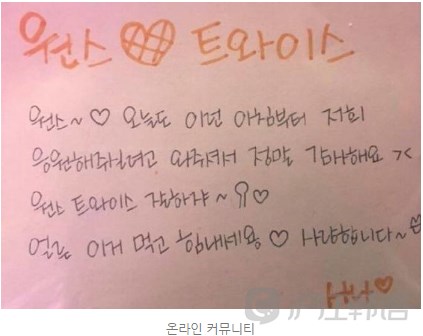 원스 ♡ 트와이스
원스~ ♡ 오늘도 이런 아침부터 저희
응원해주실려고 와주셔서 정말 감사해요 ><
원스 트와이스 ~ ♡
얼른 이거 먹고 힘내세용 ♡ 사랑합니다~
沪江韩语
온라인 커뮤니티